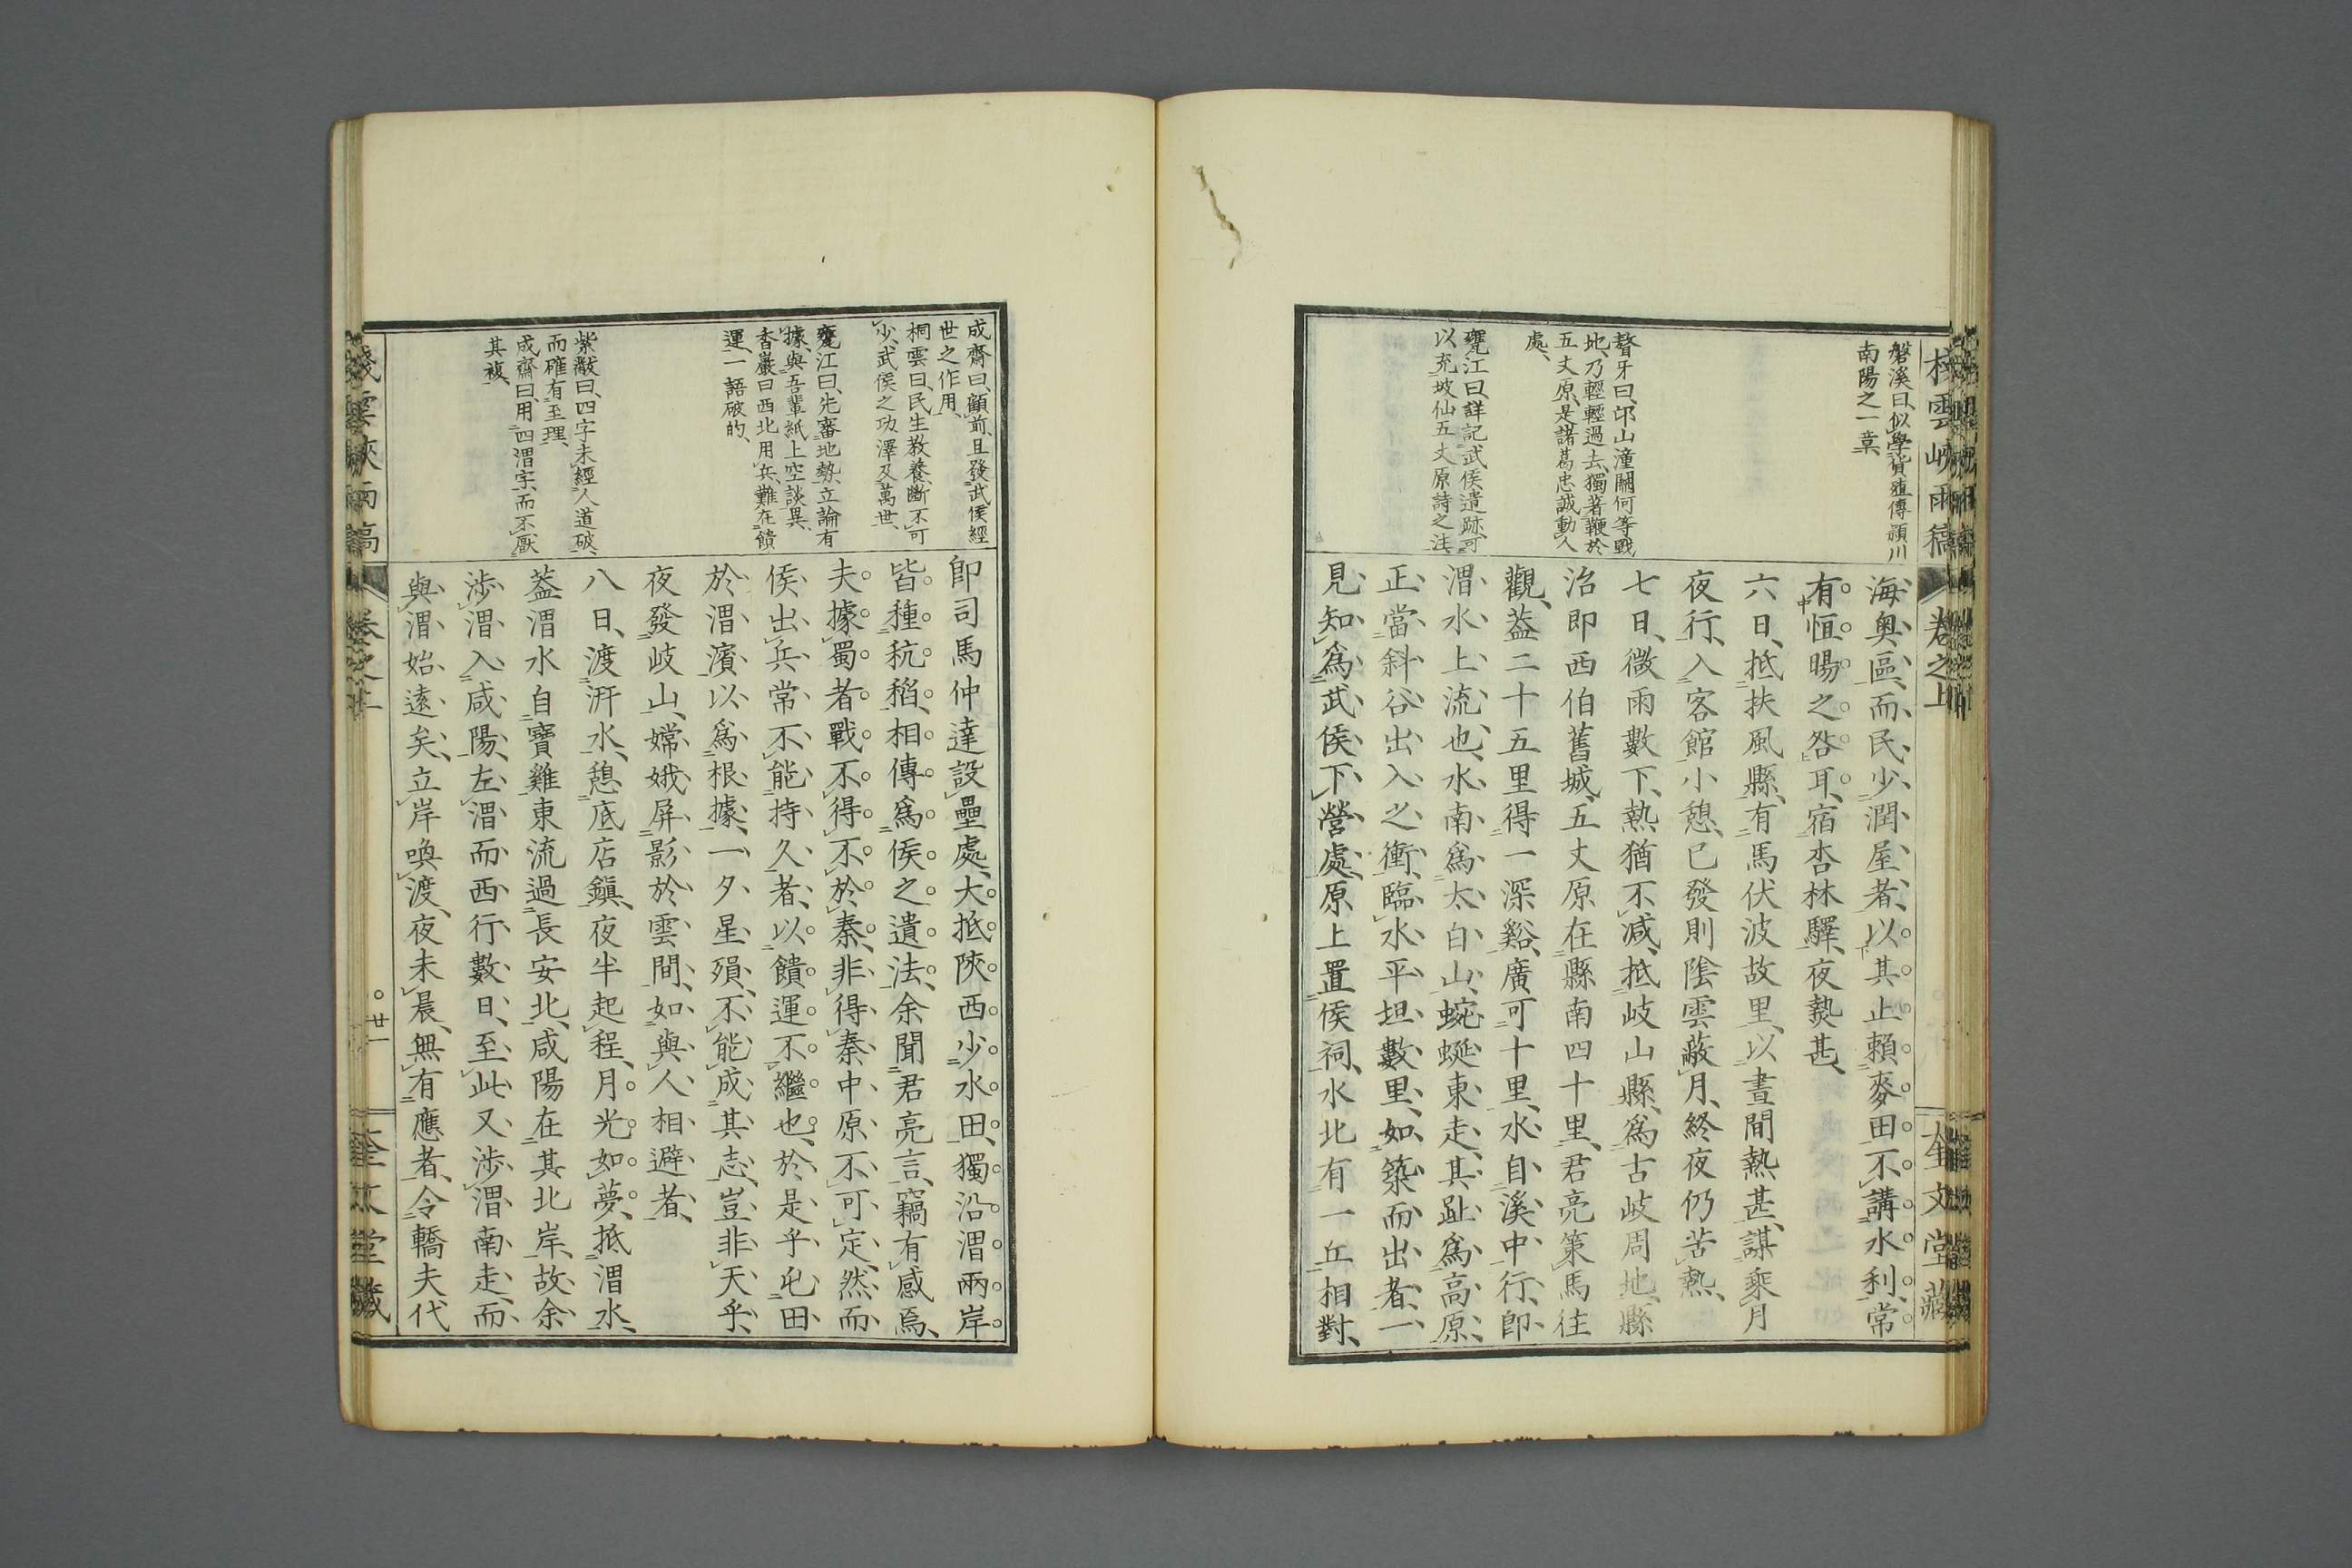 棧雲峽雨稿 卷之上 奎文堂藏
磐溪曰、似學貨殖傳潁川
南陽之一章、
聱牙曰、邙山潼關何等戰
地、乃輕輕過去、獨著鞭於
五丈原、是諸葛忠誠動人
處、
甕江曰、詳記武侯遺跡、可
以充坡仙五丈原詩之注、
海奧區、而民少潤屋者、以其止賴麥田、不講水利、常
有恒暘之咎耳、宿杏林驛、夜熱甚、
六日、抵扶風縣、有馬伏波故里、以晝間熱甚、謀乘月
夜行、入客館小憩、已發則陰雲蔽月、終夜仍苦熱、
七日、微雨數下、熱猶不減、抵岐山縣、爲古岐周地、縣
治即西伯舊城、五丈原在縣南四十里、君亮策馬往
觀、蓋二十五里得一深谿、廣可十里、水自溪中行、即
渭水上流也、水南爲太白山、蜿蜒東走、其趾爲高原、
正當斜谷出入之衝、臨水平坦數里、如築而出者、一
見知爲武侯下營處、原上置侯祠、水北有一丘相對、
成齋曰、顧前、且發武侯經
世之作用、
桐雲曰、民生教養、斷不可
少、武侯之功澤及萬世、
甕江曰、先審地勢、立論有
據、與吾輩紙上空談異、
香巖曰、西北用兵、難在饋
運、一語破的、
紫獻曰、四字未經人道破、
而確有至理、
成齋曰、用四渭字、而不厭
其複、
卽司馬仲達設壘處、大抵陝西少水田、獨沿渭兩岸
皆種秔稻、相傳爲侯之遺法、余聞君亮言、竊有感焉、
夫據蜀者戰不得不於秦、非得秦中原不可定、然而
侯出兵常不能持久者、以饋運不繼也、於是乎屯田
於渭濱以爲根據、一夕星殞、不能成其志、豈非天乎、
夜發岐山、嫦娥屏影於雲間、如與人相避者、
八日、渡汧水、憩底店鎭、夜半起程、月光如夢、抵渭水、
蓋渭水自寶雞東流過長安北、咸陽在其北岸、故余
涉渭入咸陽、左渭而西行數日、至此又涉渭南走、而
與渭始遠矣、立岸喚渡、夜未晨、無有應者、令轎夫代
棧雲峽雨稿 卷之上 廿一 奎文堂藏